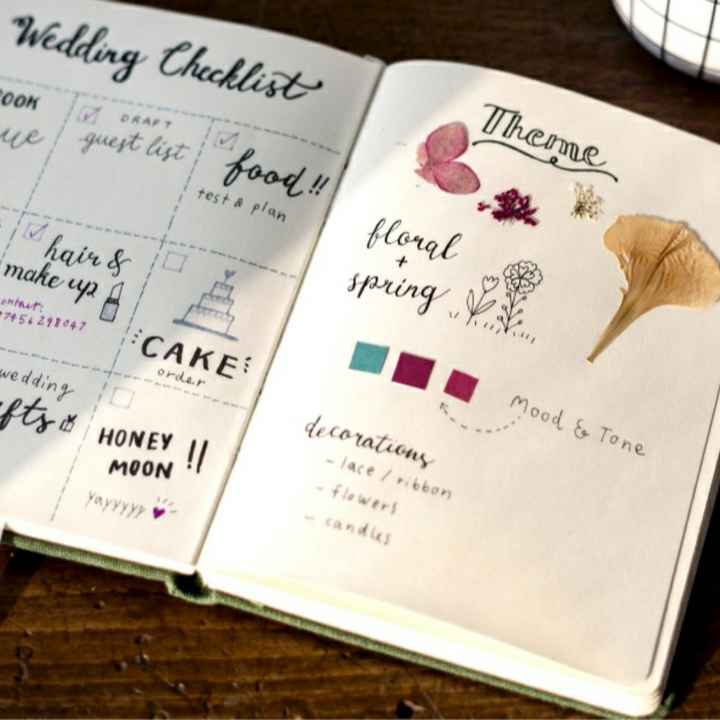 Wedding Checklist
DRAFT
guest list
food!!
test & plan
hair &
make up
CAKE
order
wedding
HONEY
MOON !!
yayyyyy
Theme
floral
+
spring
Mood & Tone
decorations
- lace / ribbon
- flowers
- candles